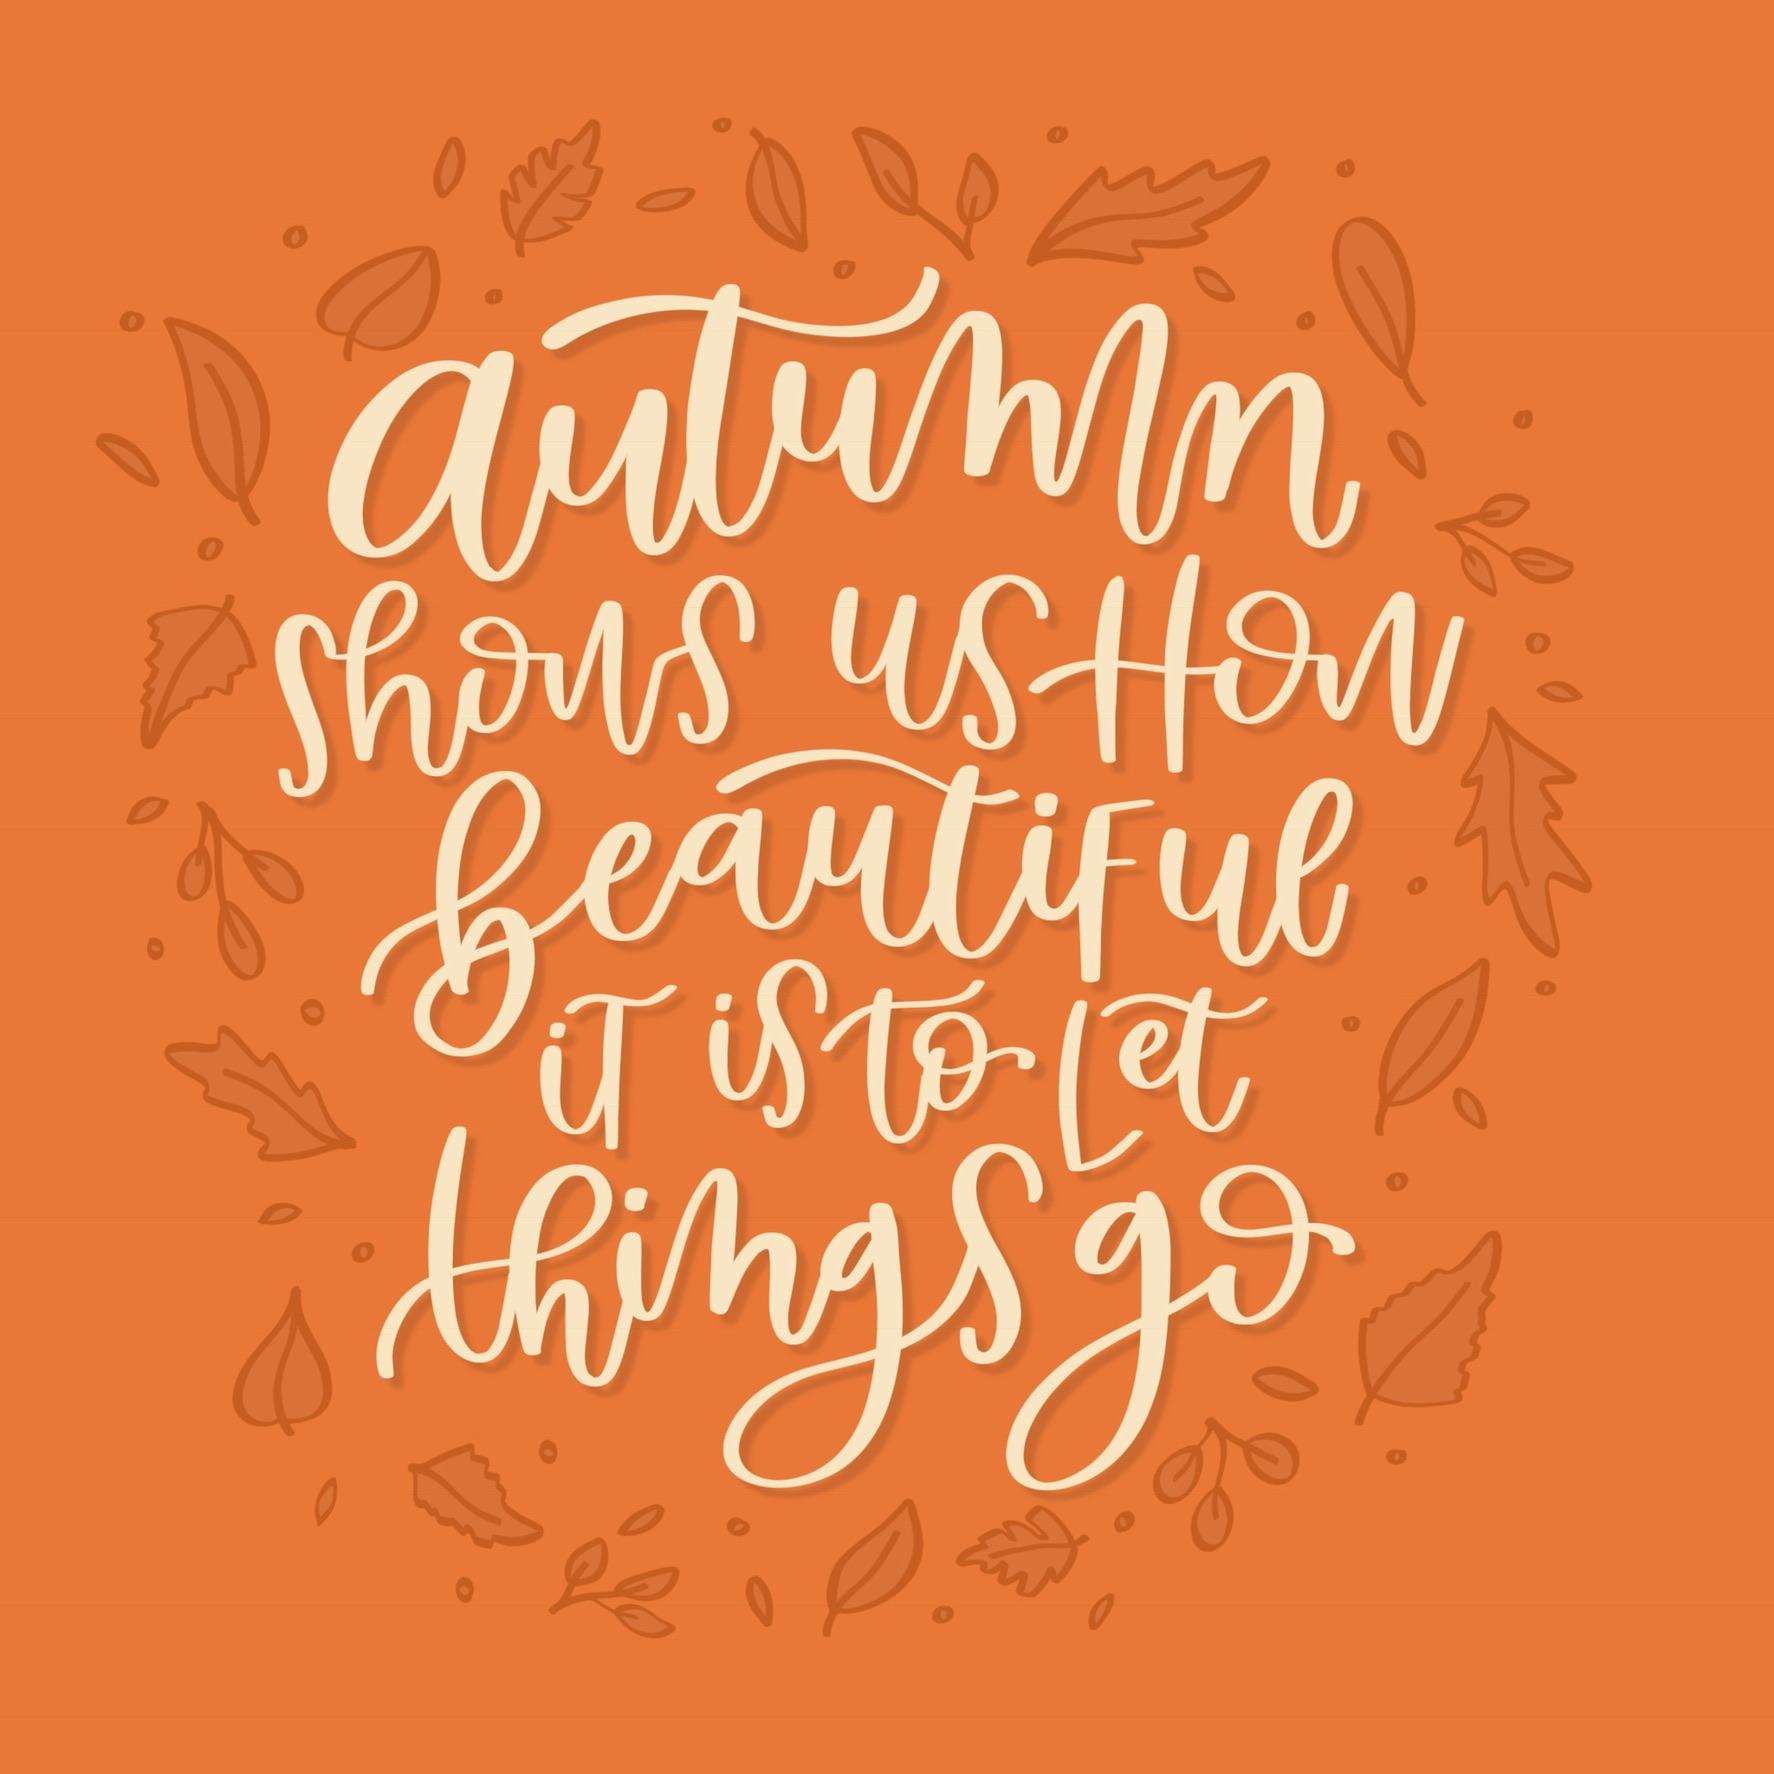 autumn
shows us how
beautiful
it is to let
things go